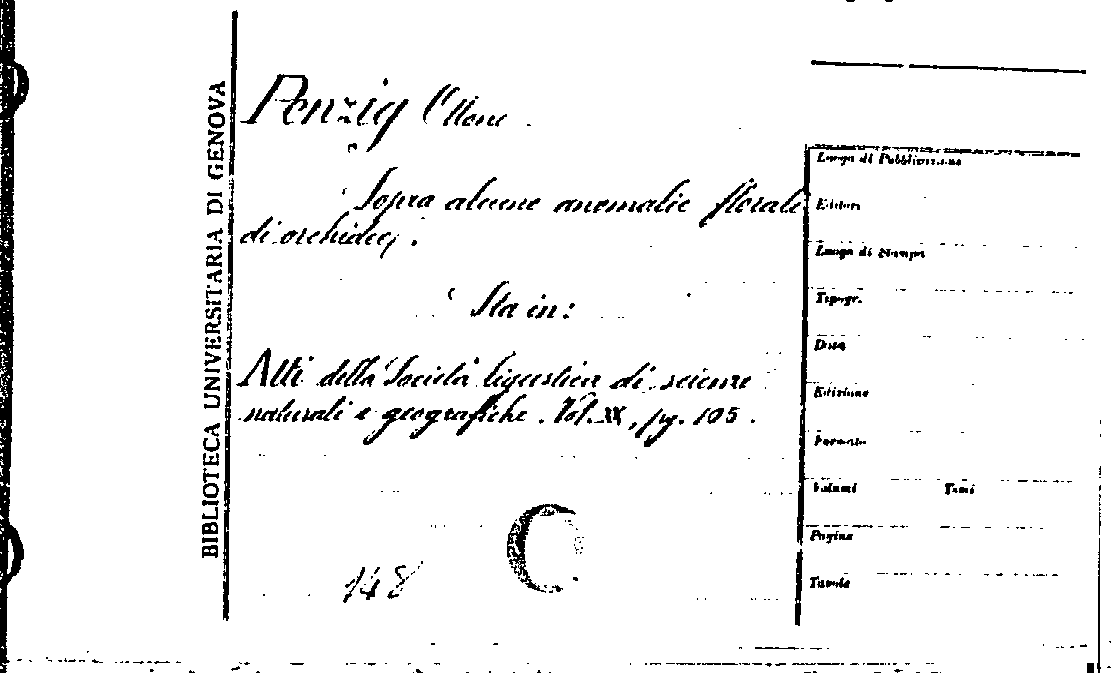 BIBLIOTECA UNIVERSITARIA DI GENOVA
Penzig Ottone.
Sopra alcune anomalie florali
di orchidee.
Sta in:
Atti della Società ligustica di scienze
naturali e geografiche. Vol. XX, pg. 105.
148
Luogo di Pubblicazione
Editori
Luogo di Stampa
Tipogr.
Data
Edizione
Formato
Volumi Tomi
Pagine
Tavole